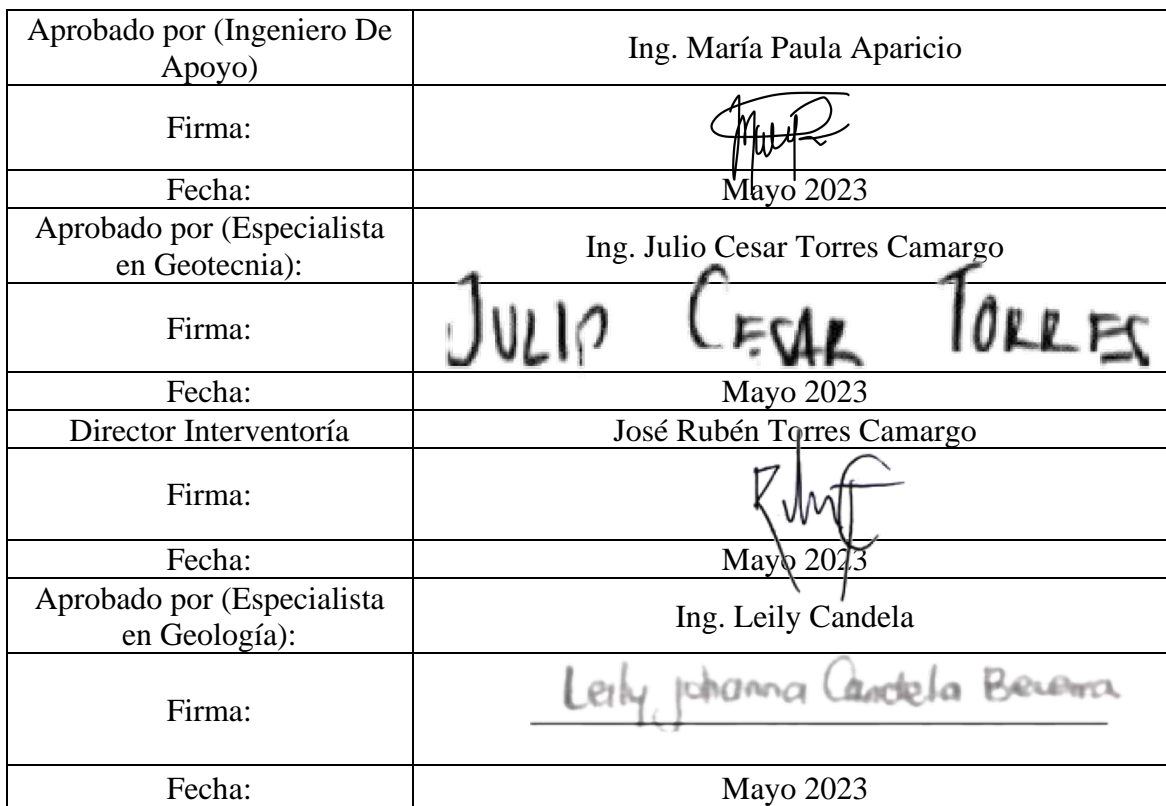 Aprobado por (Ingeniero De
Apoyo)
Ing. María Paula Aparicio
Firma:
Fecha:
Mayo 2023
Aprobado por (Especialista
en Geotecnia):
Ing. Julio Cesar Torres Camargo
Firma:
JULIO CESAR TORRES
Fecha:
Mayo 2023
Director Interventoría
José Rubén Torres Camargo
Firma:
Fecha:
Mayo 2023
Aprobado por (Especialista
en Geología):
Ing. Leily Candela
Firma:
Leily Johanna Candela Becerra
Fecha:
Mayo 2023